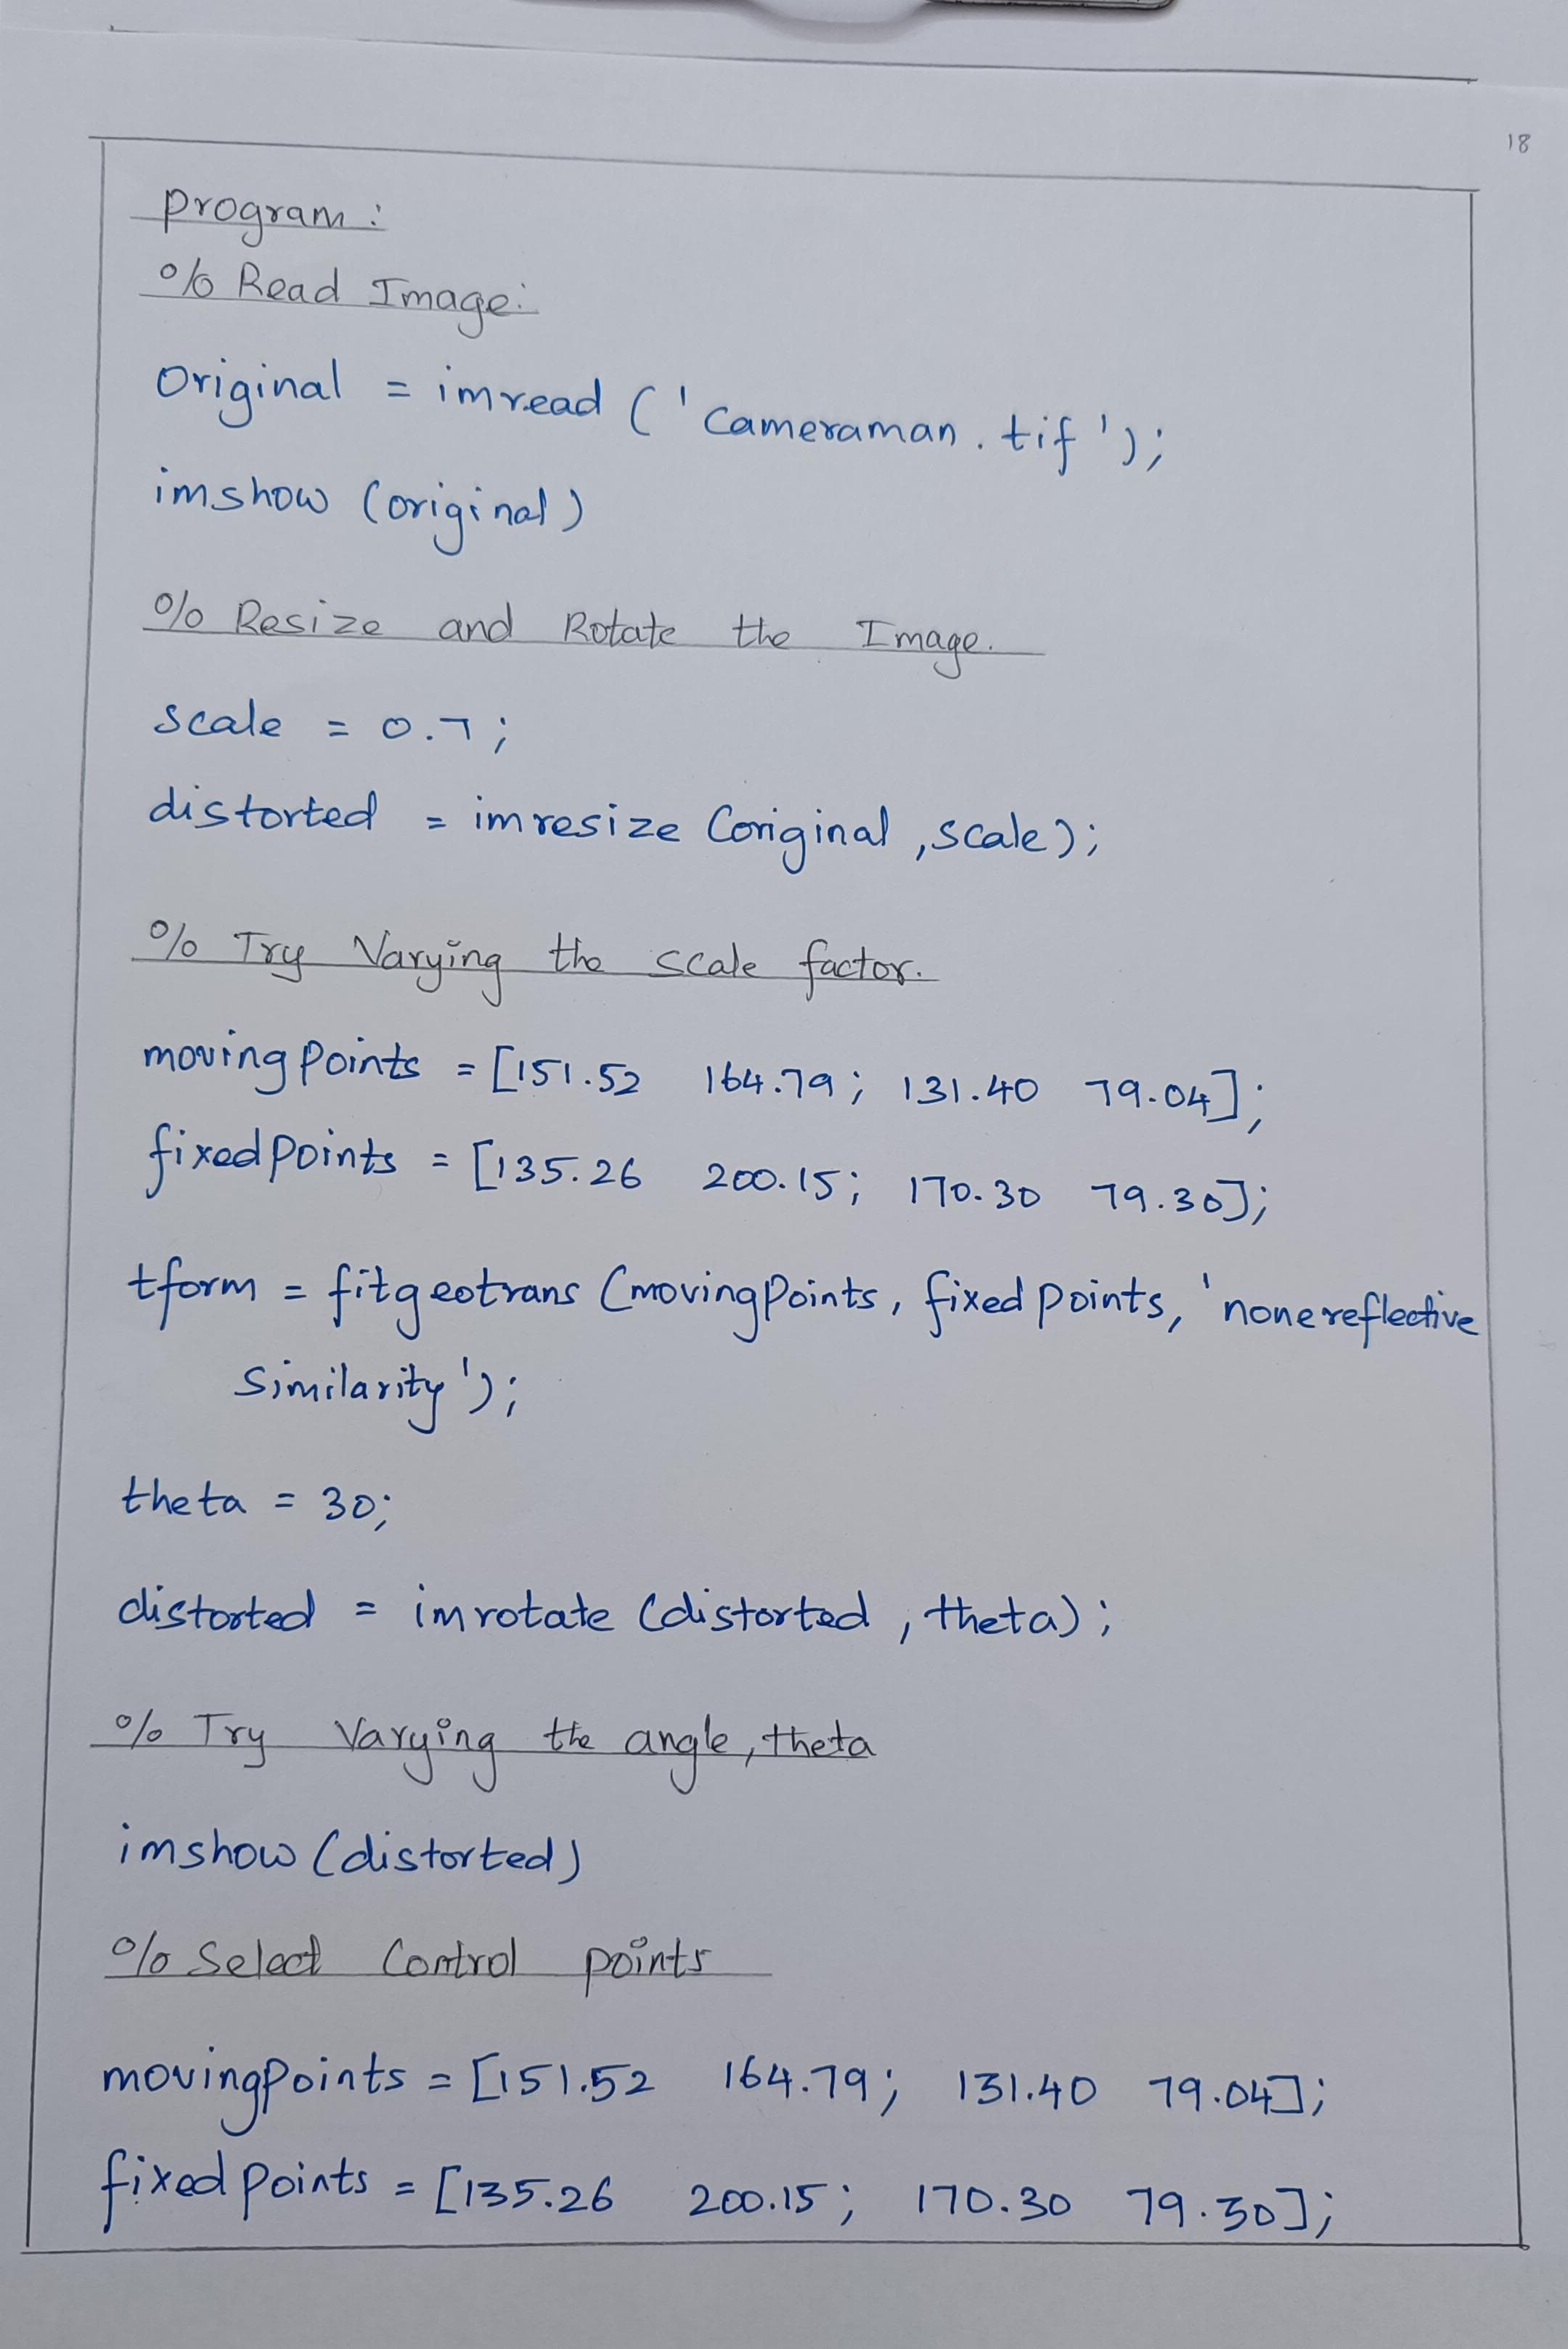 18
Program:
% Read Image:
Original = imread ('Cameraman.tif');
imshow (original)
% Resize and Rotate the Image.
scale = 0.7;
distorted = imresize (original, scale);
% Try Varying the scale factor.
movingPoints = [151.52 164.79; 131.40 79.04];
fixedPoints = [135.26 200.15; 170.30 79.30];
tform = fitgeotrans (movingPoints, fixedPoints, 'nonereflective
Similarity');
theta = 30;
distorted = imrotate (distorted, theta);
% Try Varying the angle, theta
imshow (distorted)
% Select Control points
movingPoints = [151.52 164.79; 131.40 79.04];
fixedPoints = [135.26 200.15; 170.30 79.30];